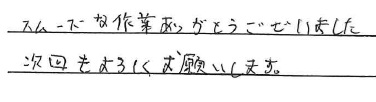 スムーズな作業ありがとうございました
次回もよろしくお願いします。